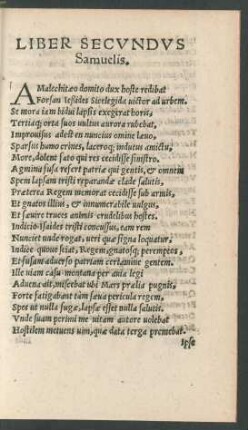 LIBER SECVNDVS
Samuelis.
A Malechitæo domito dux hoste redibat
Forsan Iessides Sicelegida victor ad urbem.
Et mora iam bidui lapsis exegerat horis,
Tertiaq; orta suos vultus aurora rubebat,
Improuisus adest en nuncius omine læuo,
Sparsus humo crines, laceroq; indutus amictu,
More, dolent fato qui res cecidisse sinistro.
Agmina fusa refert patriæ qui gentis, & omnem
Spem lapsam tristi reparandæ clade salutis,
Præterea Regem memorat cecidisse sub armis,
Et gnatos illius, & innumerabile vulgus,
Et sæuire truces animis crudelibus hostes.
Indicio Isaides tristi concussus, eam rem
Nunciet unde rogat, veri quæ signa loquatur,
Indice quoue sciat, Regem, gnatosq; peremptos,
Et fusam aduerso patriam certamine gentem.
Ille viam casu montana per auia legi
Aduena ait, miscebat ubi Mars prælia pugnis,
Forte fatigabant tam sæua pericula regem,
Spes ut nulla fugæ, lapsæ esset nulla salutis.
Vnde suam perimi me vitam autore volebat
Hostilem metuens vim, quæ data terga premebat.
Ipse